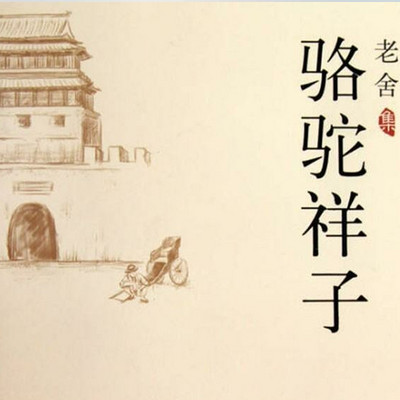 老舍集
骆驼祥子